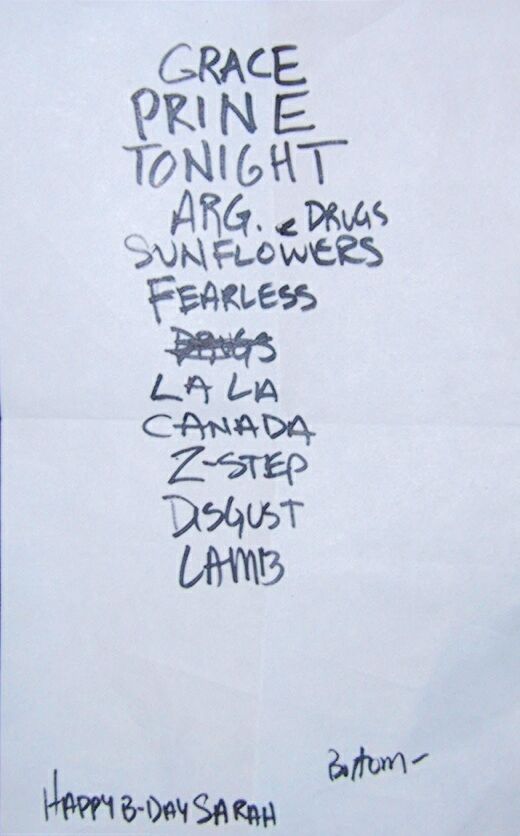 GRACE
PRINE
TONIGHT
ARG. DRUGS
SUNFLOWERS
FEARLESS
DRUGS
LA LA
CANADA
Z-STEP
DISGUST
LAMB
Bottom-
HAPPY B-DAY SARAH